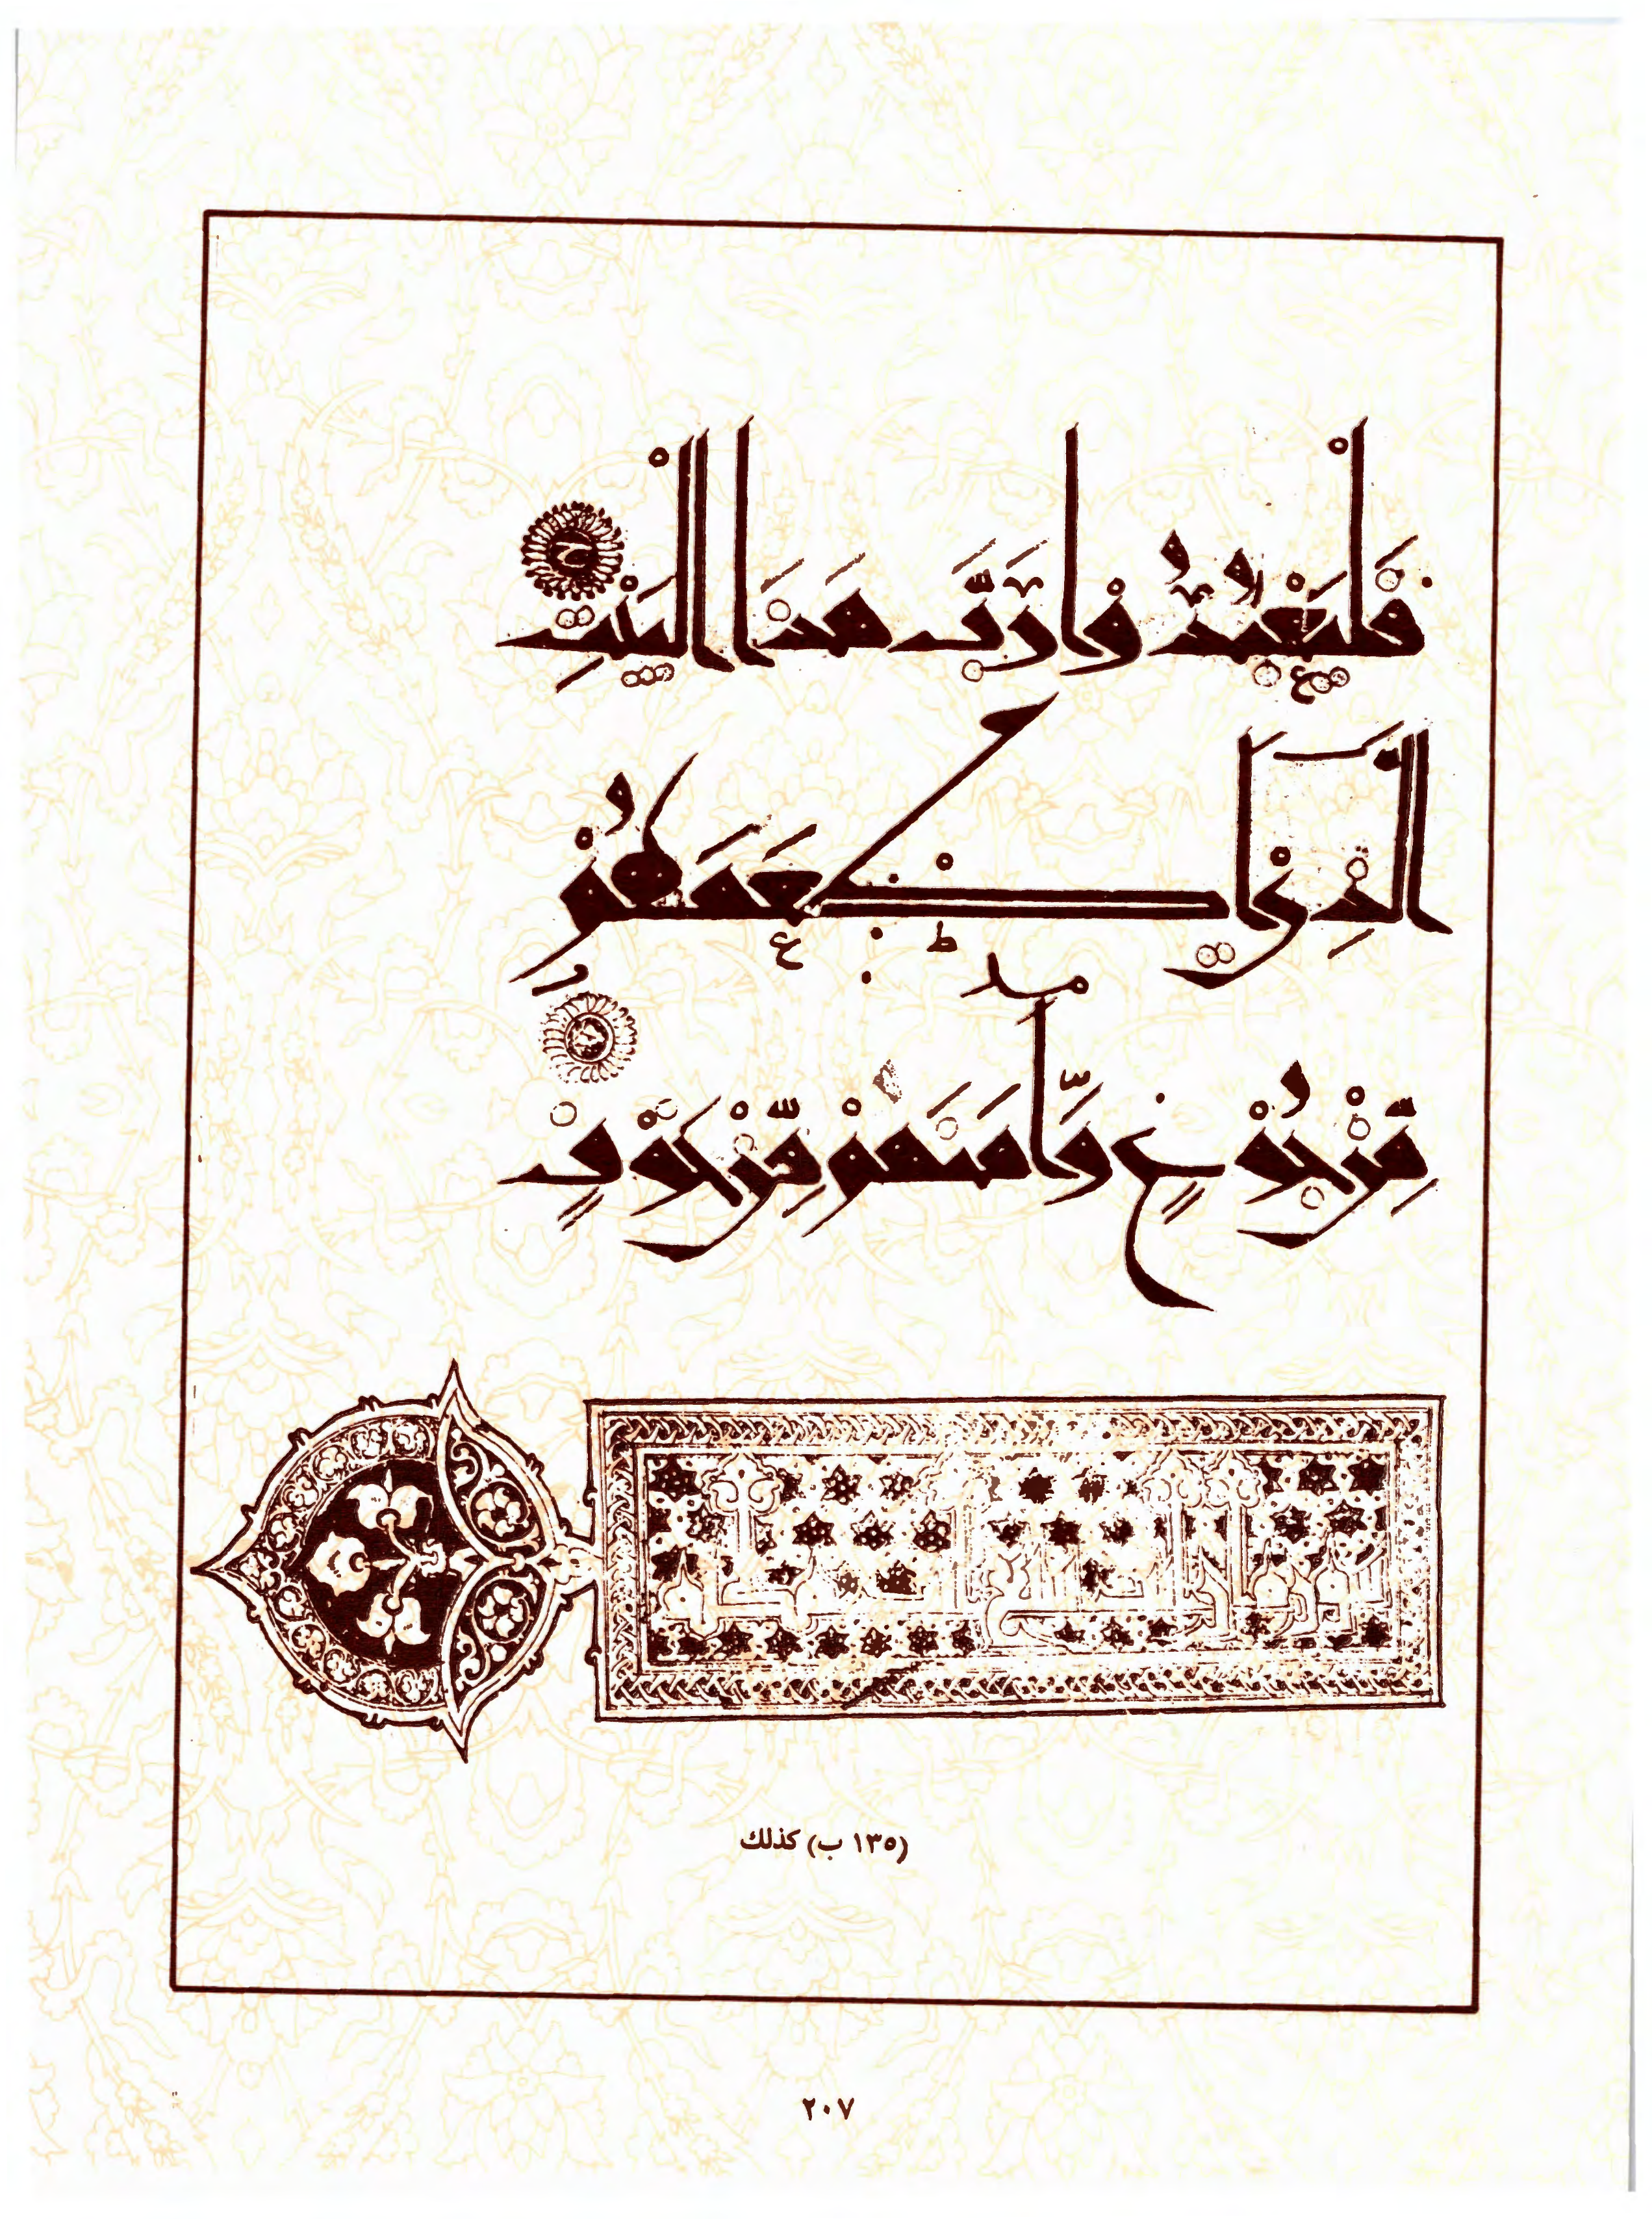 فَلْيَعْبُدُوا رَبَّ هَذَا الْبَيْتِ
الَّذِي أَطْعَمَهُمْ
مِنْ جُوعٍ وَآمَنَهُمْ مِنْ خَوْفٍ
(١٣٥ ب) كذلك
٢٠٧